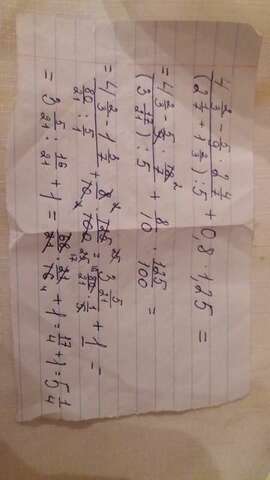 (4 2/3 - 5/6 · 2 4/7) / ((2 1/7 + 1 2/3) : 5) + 0,8 · 1,25 =
= (4 2/3 - 5/6 · 18/7) / ((3 17/21) : 5) + 8/10 · 125/100 =
= (4 2/3 - 1 3/7) / (80/21 : 5/1) + 8/10 · 125/100 = (3 5/21) / (80/21 · 1/5) + 1 =
= 3 5/21 : 16/21 + 1 = (68 · 21) / (21 · 16) + 1 = 17/4 + 1 = 5 1/4